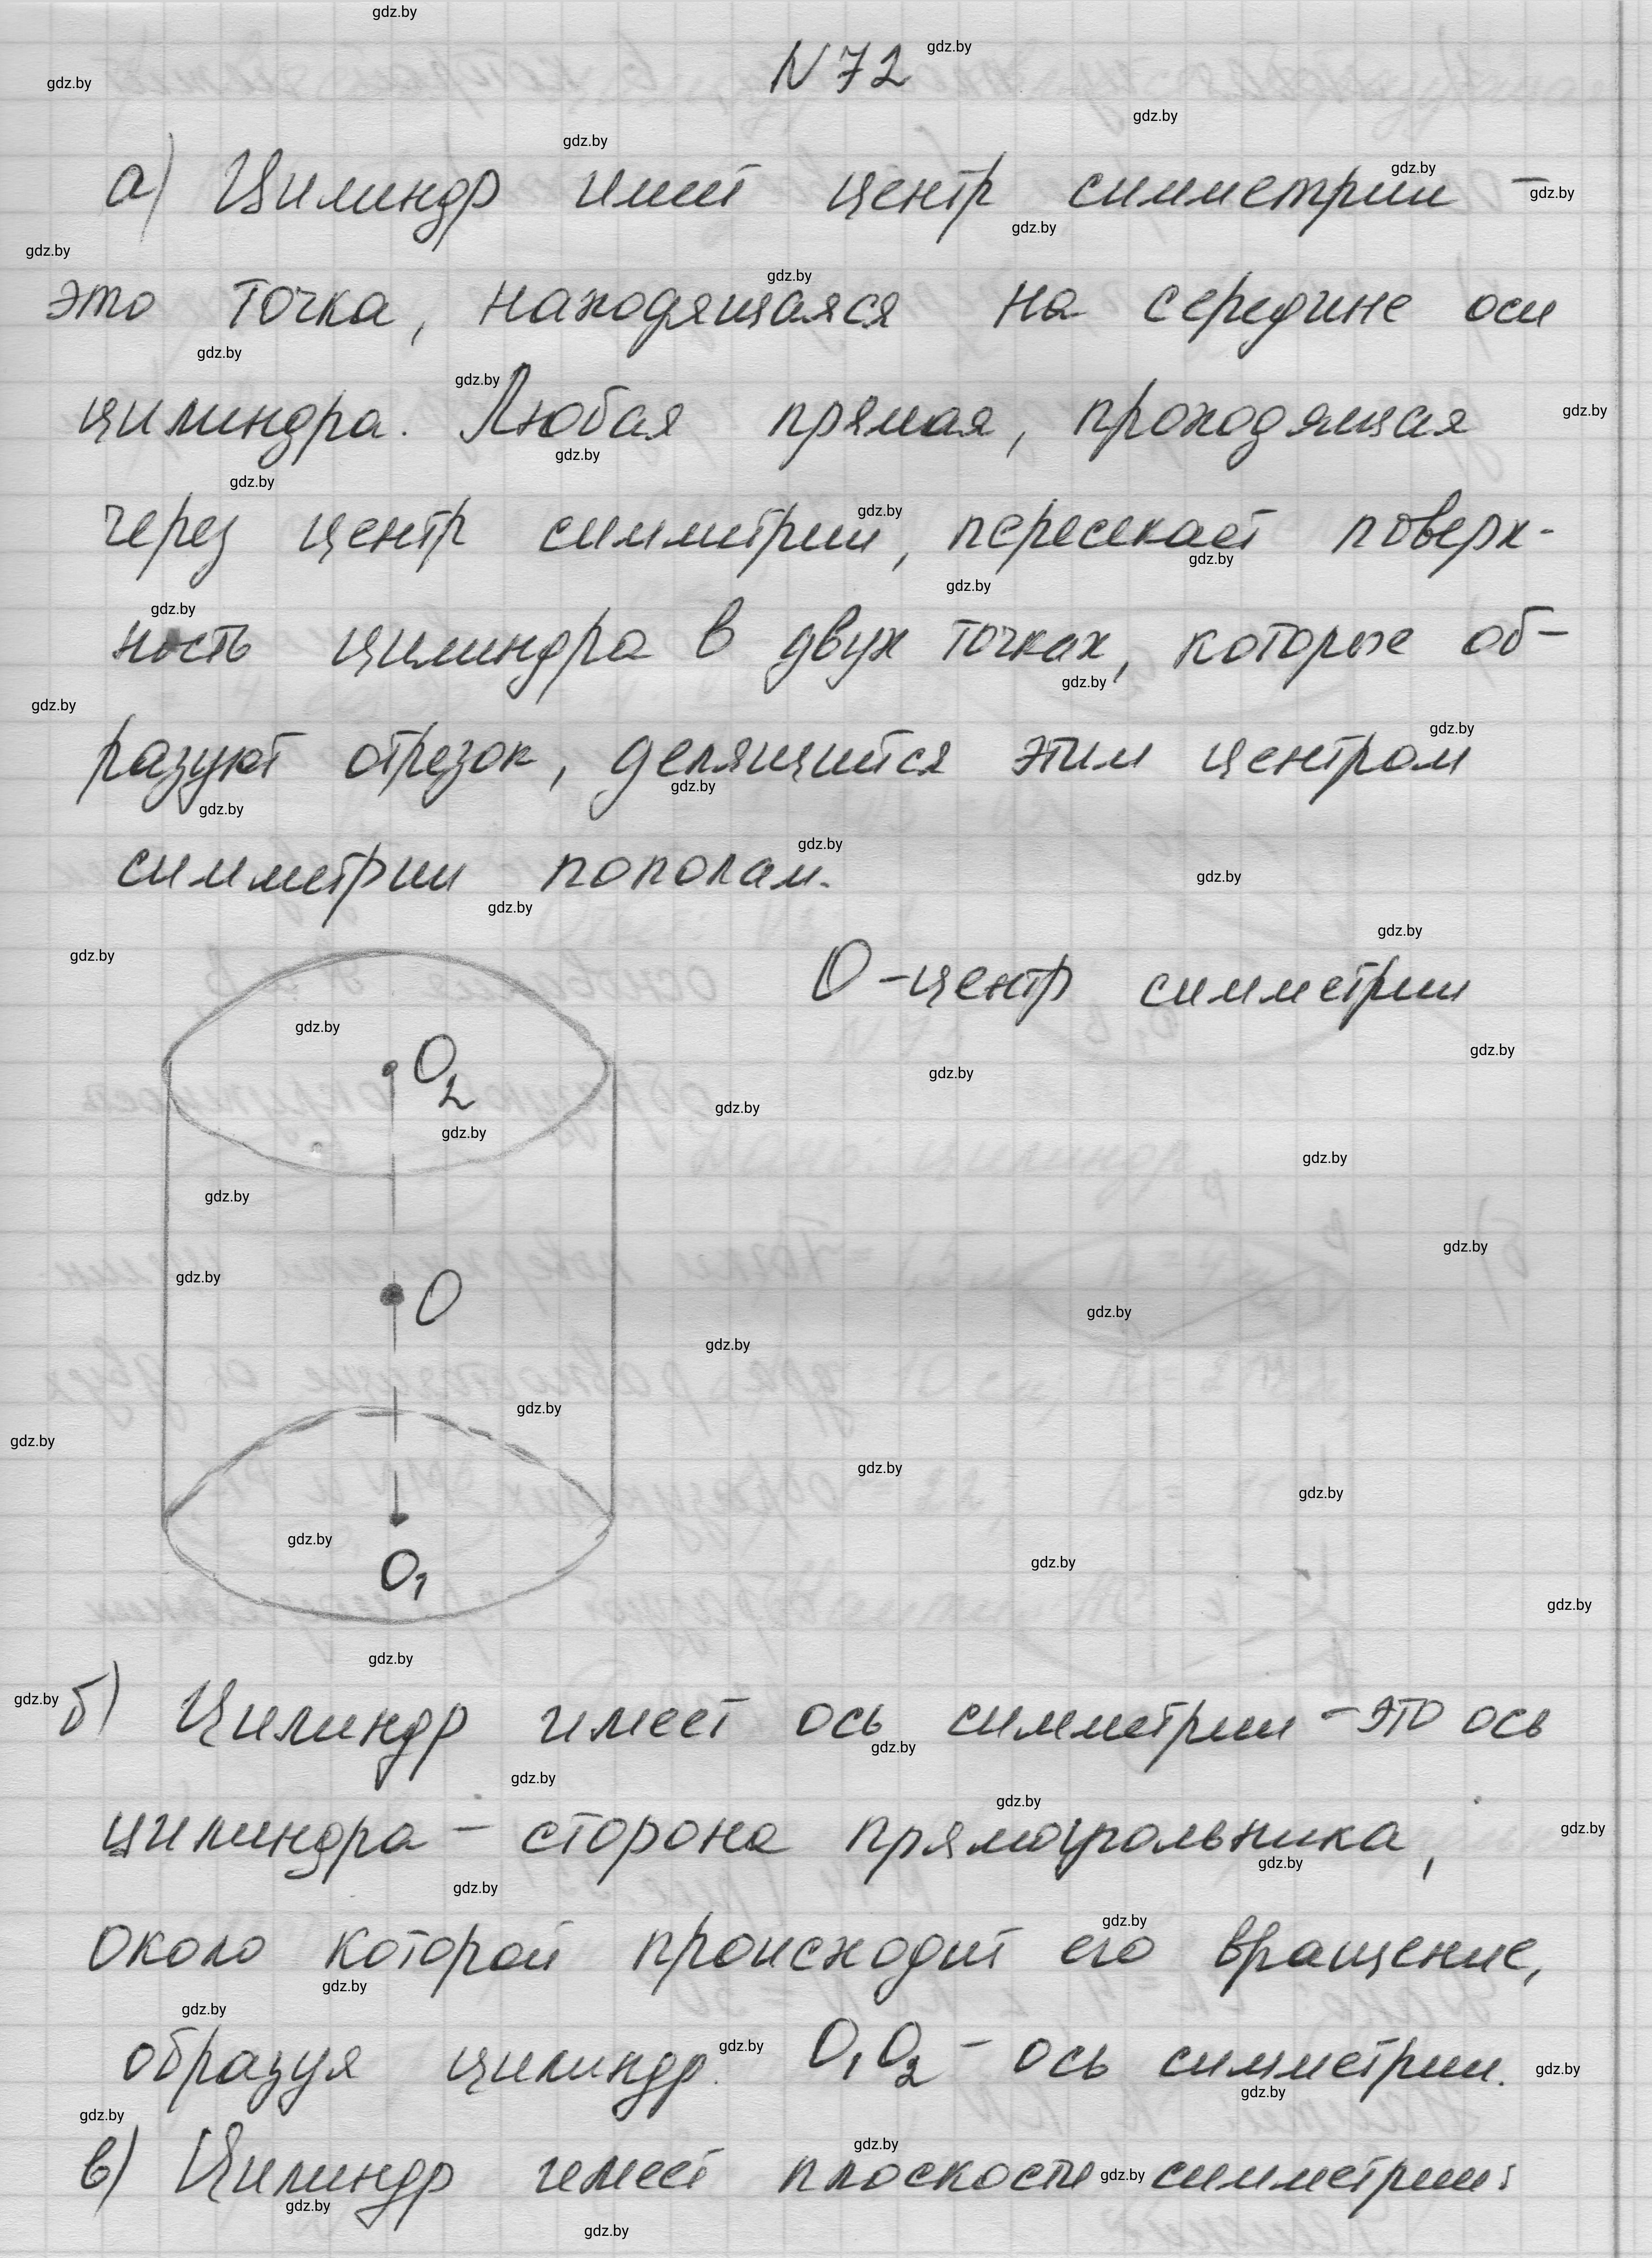 N 72
а) Цилиндр имеет центр симметрии -
это точка, находящаяся на середине оси
цилиндра. Любая прямая, проходящая
через центр симметрии, пересекает поверх-
ность цилиндра в двух точках, которые об-
разуют отрезок, делящийся этим центром
симметрии пополам.
O - центр симметрии
O2
O
O1
б) Цилиндр имеет ось симметрии - это ось
цилиндра - сторона прямоугольника,
около которой происходит его вращение,
образуя цилиндр. O1O2 - ось симметрии.
в) Цилиндр имеет плоскости симметрии:
gdz.by